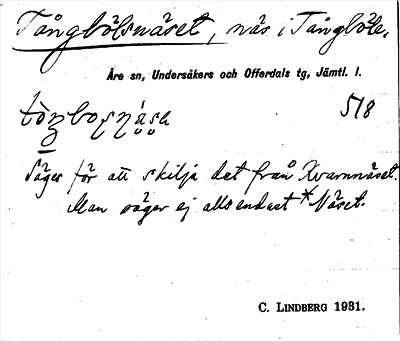 Tångbölsnäset, näs i Tångböle,
Åre sn, Undersåkers och Offerdals tg, Jämtl. l.
518
Säges för att skilja det från Kvarnnäset.
Man säger ej alls endast *Näset.
C. LINDBERG 1931.